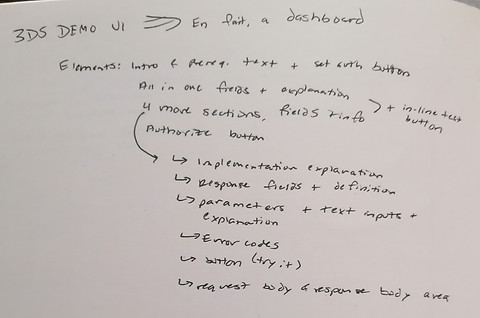 3DS DEMO UI ⇒ En fait, a dashboard
Elements: Intro & Prereq. text + set auth button
All in one fields + explanation
+ in-line test button
4 more sections, fields + info
Authorize button
↳ Implementation explanation
↳ Response fields + definition
↳ parameters + text inputs + explanation
↳ Error codes
↳ button (try it)
↳ request body & response body area